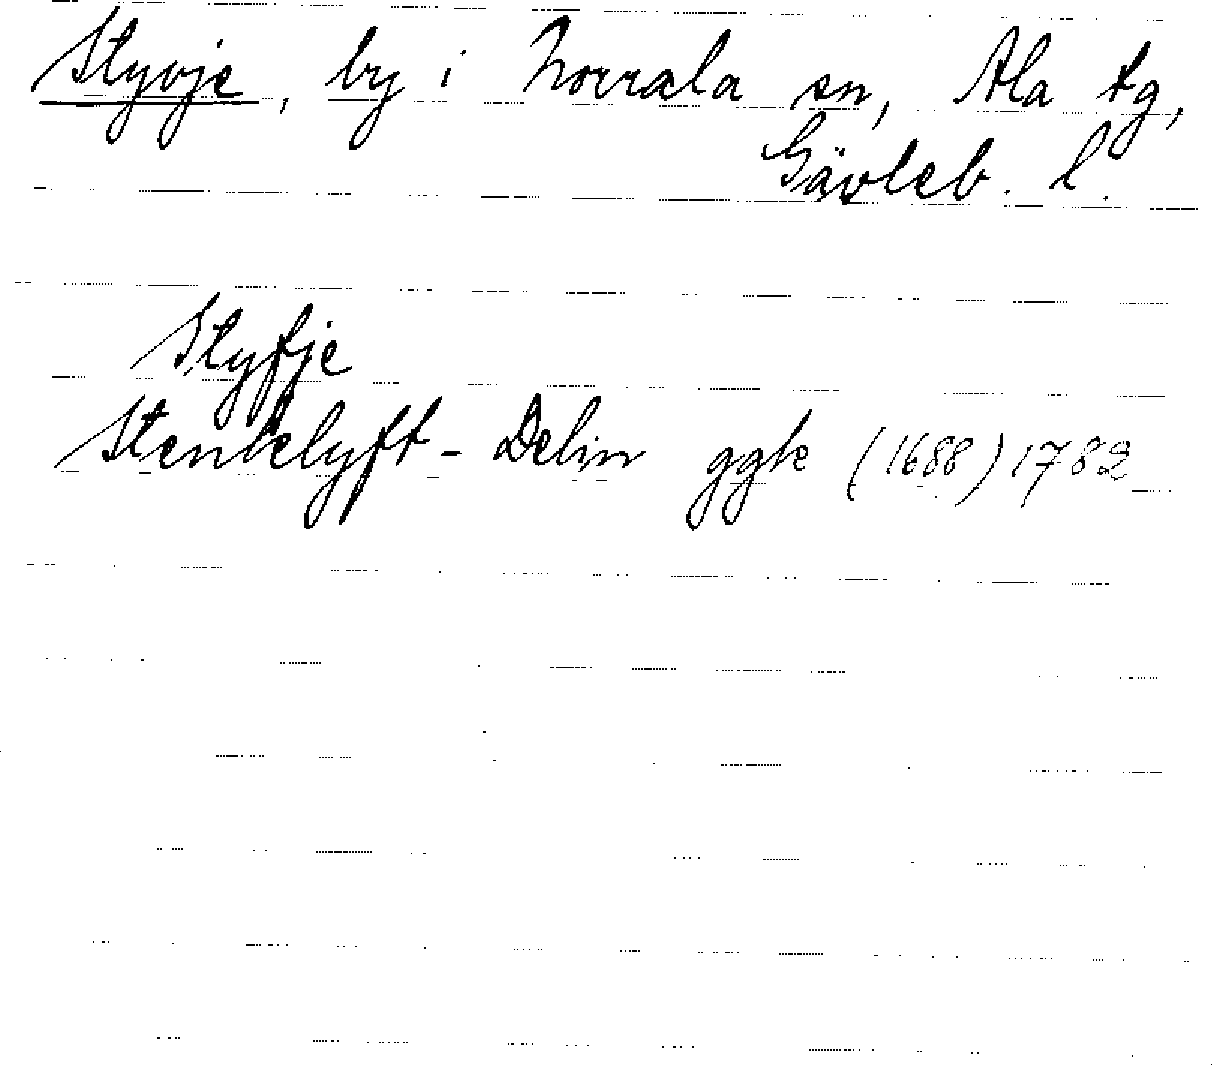 Styvje, by i Norrala sn, Ala tg,
Gävleb. l.
Styfje
Stenkelyft - Delin ggk (1688) 1782